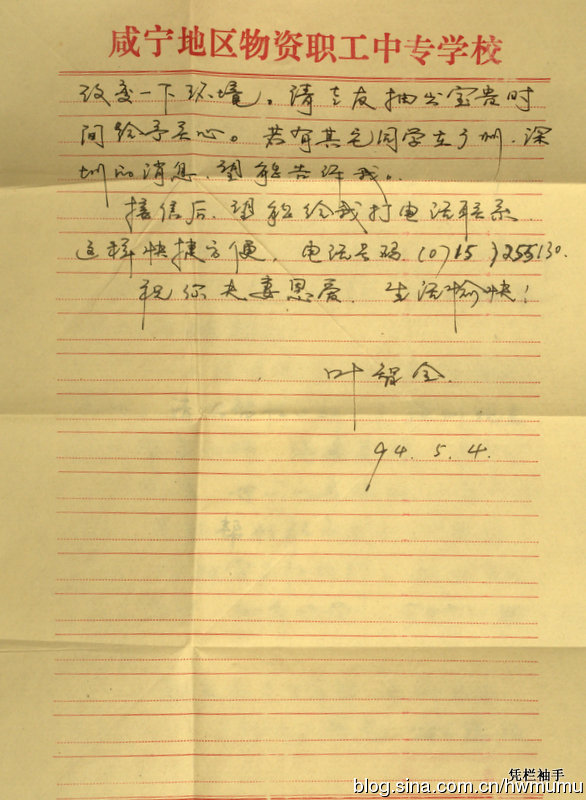 咸宁地区物资职工中专学校
改变一下环境。请老友抽出宝贵时
间给予关心。若有其它同学在广州、深
圳的消息,望能告诉我。
接信后,望能给我打电话联系
这样快捷方便。电话号码(0715)255130.
祝你夫妻恩爱、生活愉快!
叶智全
94.5.4.
凭栏袖手
blog.sina.com.cn/hwmumu